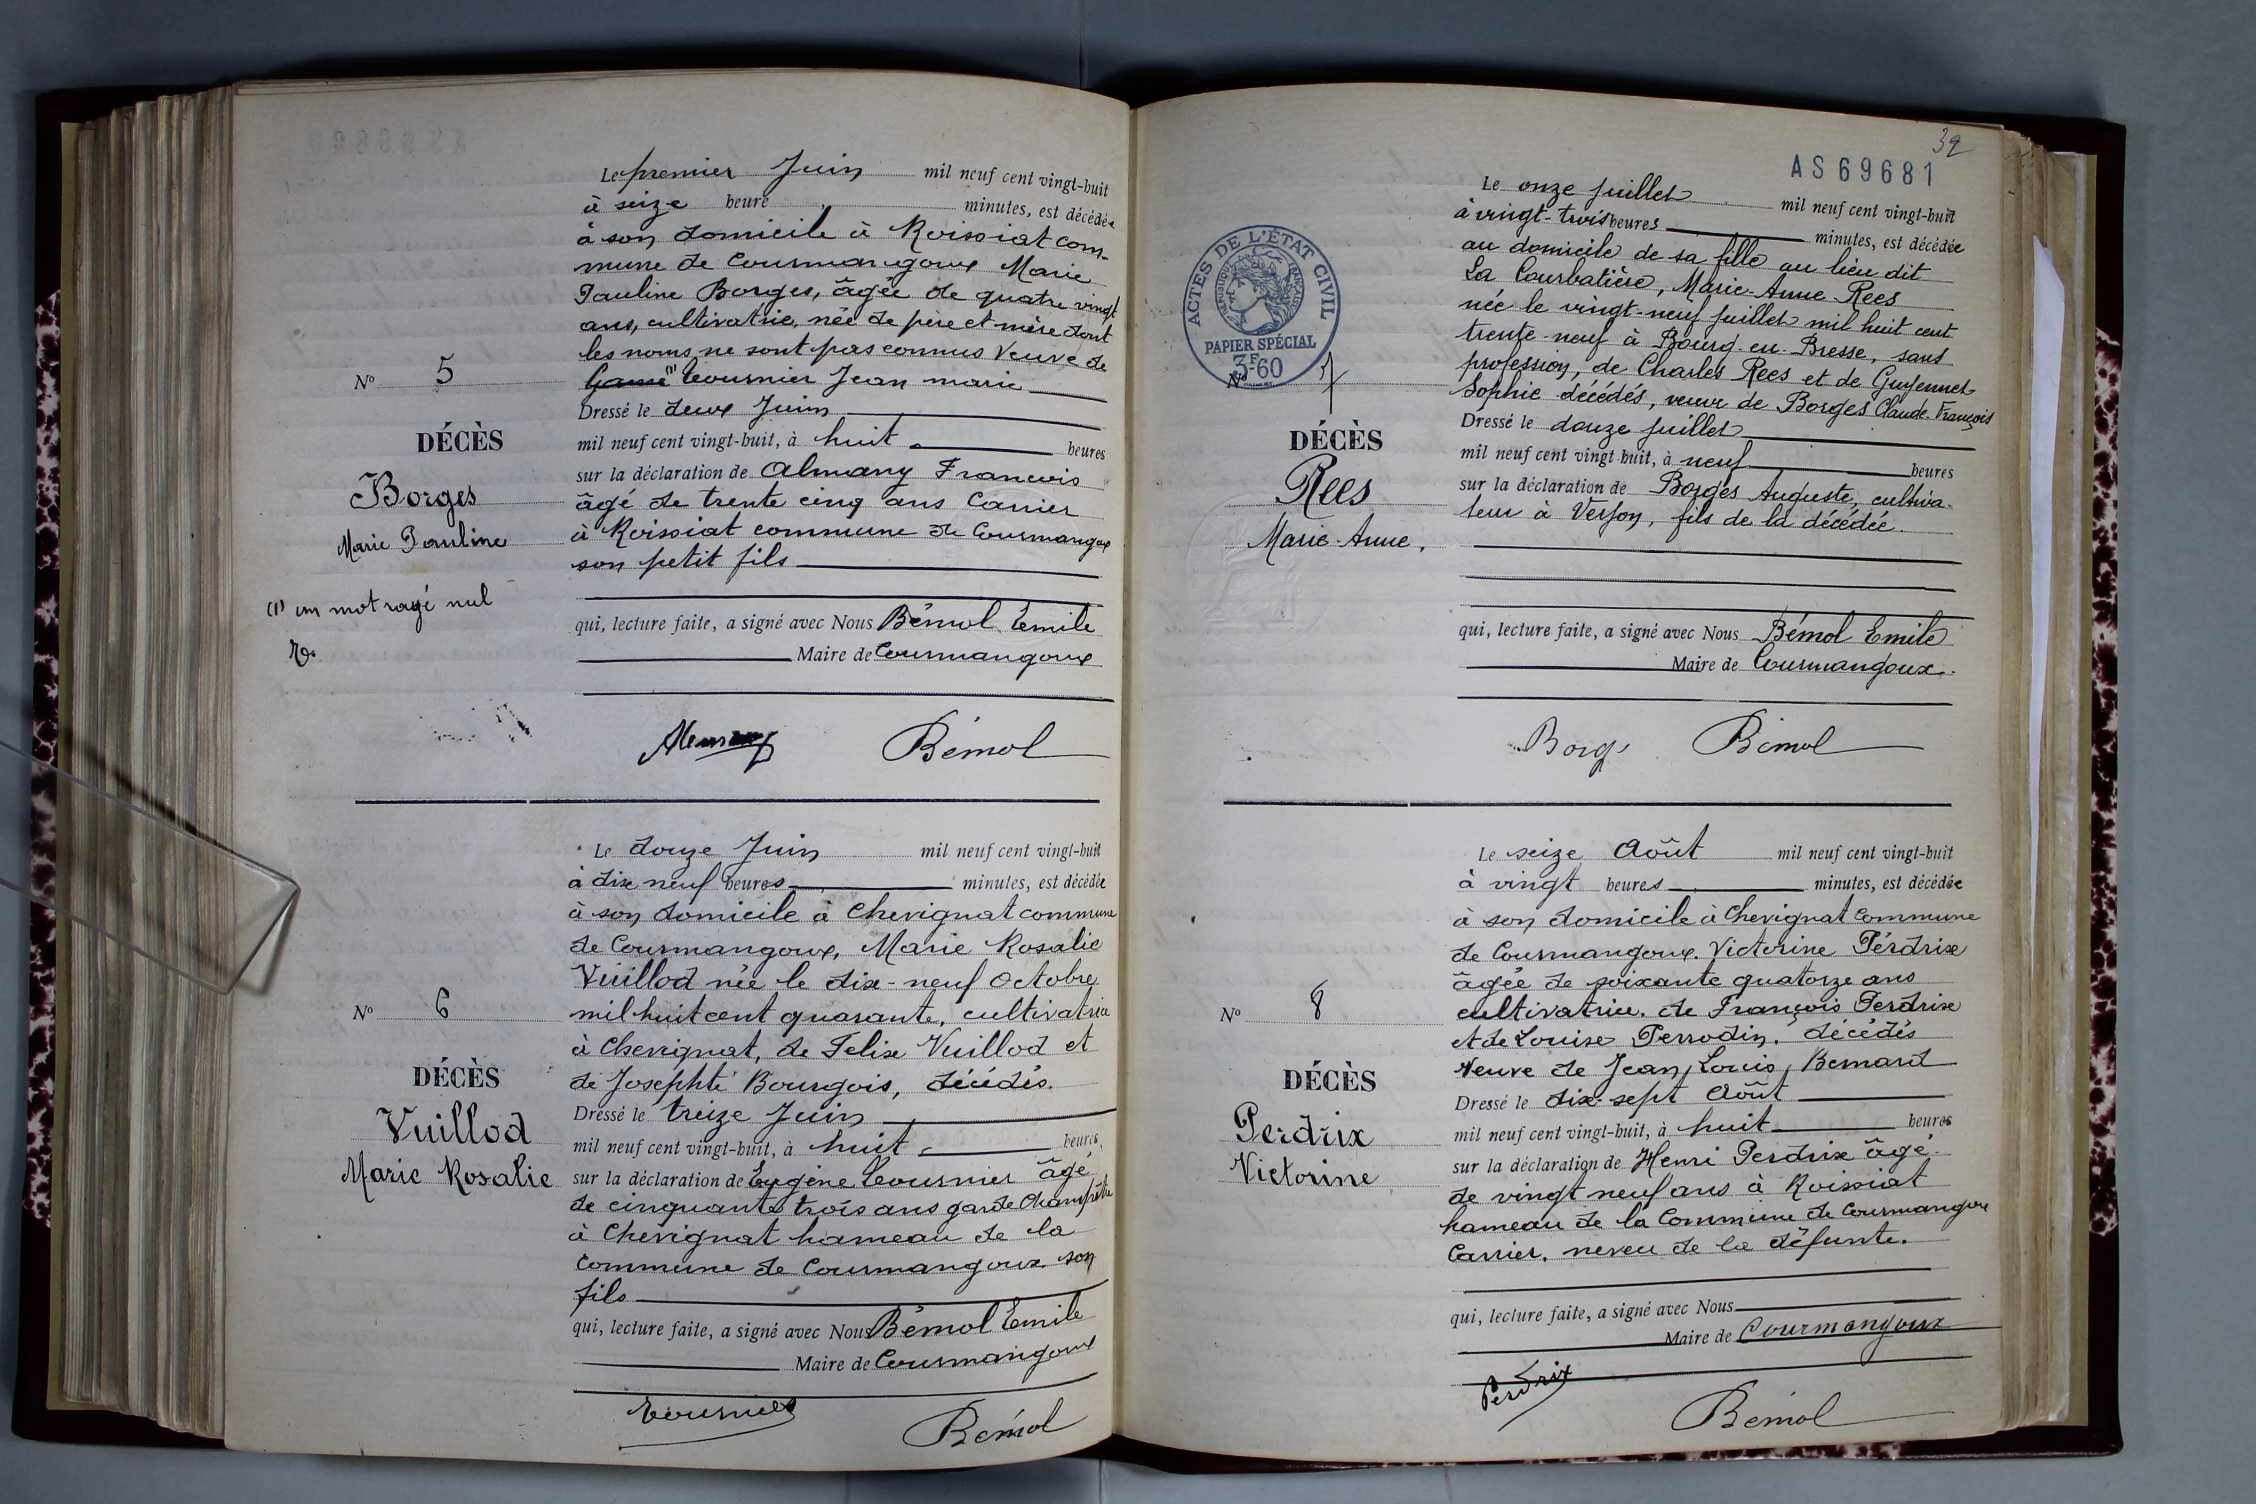 Le premier Juin mil neuf cent vingt-huit
à seize heure minutes, est décédée
à son domicile à Roissiat com-
mune de Courmangoux Marie
Pauline Borges, âgée de quatre vingt
ans, cultivatrice, née de père et mère dont
les noms ne sont pas connus Veuve de
(1) Tournier Jean marie
Dressé le deux Juin
mil neuf cent vingt-huit, à huit heures
sur la déclaration de Almany Francois
âgé de trente cinq ans Carrier
à Roissiat commune de Courmangoux
son petit fils
qui, lecture faite, a signé avec Nous Bémol Émile
Maire de Courmangoux
Nº 5
DÉCÈS
Borges
Marie Pauline
(1) un mot rayé nul
Bémol
Le douze Juin mil neuf cent vingt-huit
à dix neuf heures minutes, est décédée
à son domicile à Chevignat commune
de Courmangoux, Marie Rosalie
Vuillod née le dix-neuf Octobre
mil huit cent quarante, cultivatrice
à Chevignat, de Felix Vuillod et
de Joséphté Bourgois, décédés.
Dressé le treize Juin
mil neuf cent vingt-huit, à huit heures
sur la déclaration de Eugène Tournier âgé
de cinquante trois ans garde Champêtre
à Chevignat hameau de la
Commune de Courmangoux son
fils
qui, lecture faite, a signé avec Nous Bémol Émile
Maire de Courmangoux
Nº 6
DÉCÈS
Vuillod
Marie Rosalie
Tournier
Bémol
32
AS69681
ACTES DE L'ÉTAT CIVIL
RÉPUBLIQUE FRANÇAISE
PAPIER SPÉCIAL
3F60
Le onze juillet mil neuf cent vingt-huit
à vingt-trois heures minutes, est décédée
au domicile de sa fille au lieu dit
La Courbatière, Marie-Anne Rees
née le vingt-neuf juillet mil huit cent
trente-neuf à Bourg-en-Bresse, sans
profession, de Charles Rees et de Guyennet
Sophie décédés, veuve de Borges Claude-François
Dressé le douze juillet
mil neuf cent vingt-huit, à neuf heures
sur la déclaration de Borges Auguste, cultiva-
teur à Verjon, fils de la décédée.
qui, lecture faite, a signé avec Nous Bémol Emile
Maire de Courmangoux.
Nº 7
DÉCÈS
Rees
Marie-Anne.
Borg
Bémol
Le seize Août mil neuf cent vingt-huit
à vingt heures minutes, est décédée
à son domicile à Chevignat Commune
de Courmangoux. Victorine Pérdrix
âgée de soixante quatorze ans
cultivatrice. de François Perdrix
et de Louise Perrodin. décédés
Veuve de Jean, Louis, Bernard
Dressé le dix-sept Août
mil neuf cent vingt-huit, à huit heures
sur la déclaration de Henri Perdrix âgé
de vingt neuf ans à Roissiat
hameau de la Commune de Courmangoux
Carrier. neveu de la défunte.
qui, lecture faite, a signé avec Nous
Maire de Courmangoux
Nº 8
DÉCÈS
Perdrix
Victorine
Perdrix
Bémol